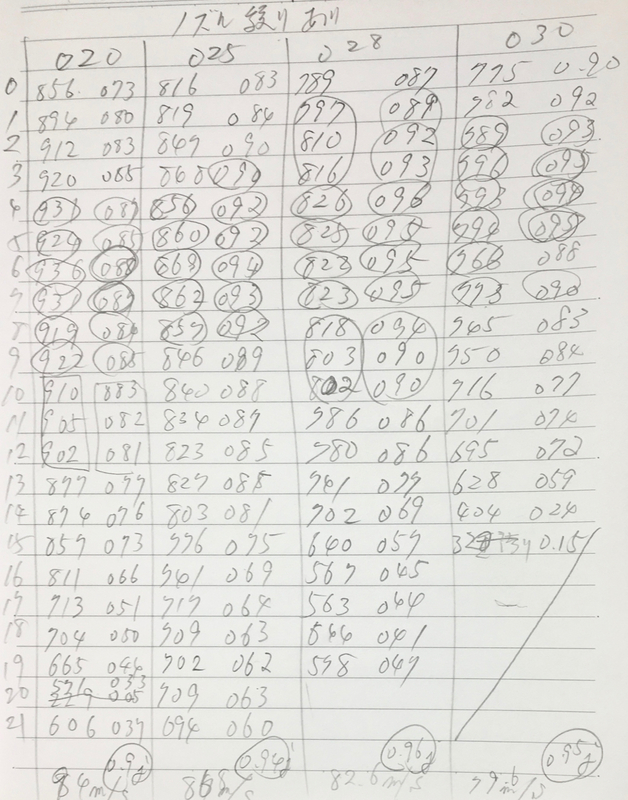 ノズル絞り あり
020 025 028 030
0 856 073 816 083 789 087 775 0.90
1 894 080 819 084 797 089 782 092
2 912 083 847 090 810 092 789 093
3 920 085 860 090 816 093 796 095
4 931 087 856 092 826 096 793 094
5 924 085 860 093 825 095 794 095
6 936 088 863 094 823 095 768 088
7 931 087 862 093 823 095 773 090
8 919 084 857 092 818 094 745 083
9 922 085 846 089 803 090 750 084
10 910 883 840 088 802 090 716 077
11 905 082 834 087 786 086 701 074
12 902 081 823 085 780 086 695 072
13 877 077 827 085 741 077 628 059
14 874 076 803 081 702 069 404 024
15 857 073 776 075 640 057 0.151
16 811 066 741 069 567 045
17 713 051 717 064 563 044
18 704 050 709 063 544 041
19 665 044 702 062 578 047
20 033 709 063
21 606 037 694 060
0.9g 0.94g 0.96g 0.95g
84m/s m/s 82.6m/s 79.6m/s